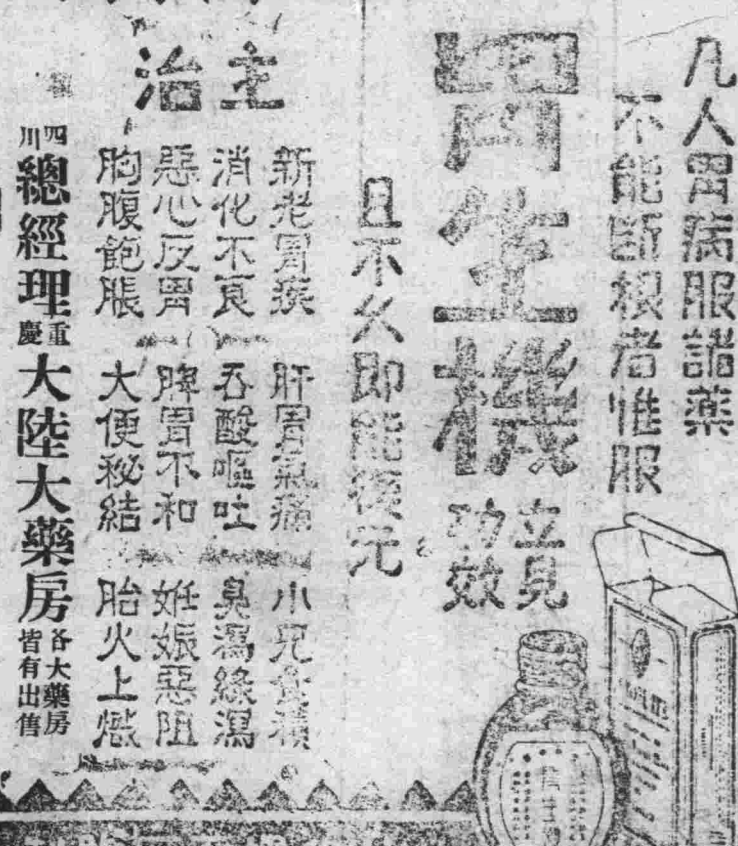 凡人胃病服諸藥
不能斷根者惟服
胃生機
立見
功效
且不久即能復元
主治
新老胃疾
肝胃氣痛
小兒食積
消化不良
吞酸嘔吐
臭瀉綠瀉
惡心反胃
脾胃不和
妊娠惡阻
胸腹飽脹
大便秘結
胎火上熾
四川總經理重慶大陸大藥房各大藥房皆有出售